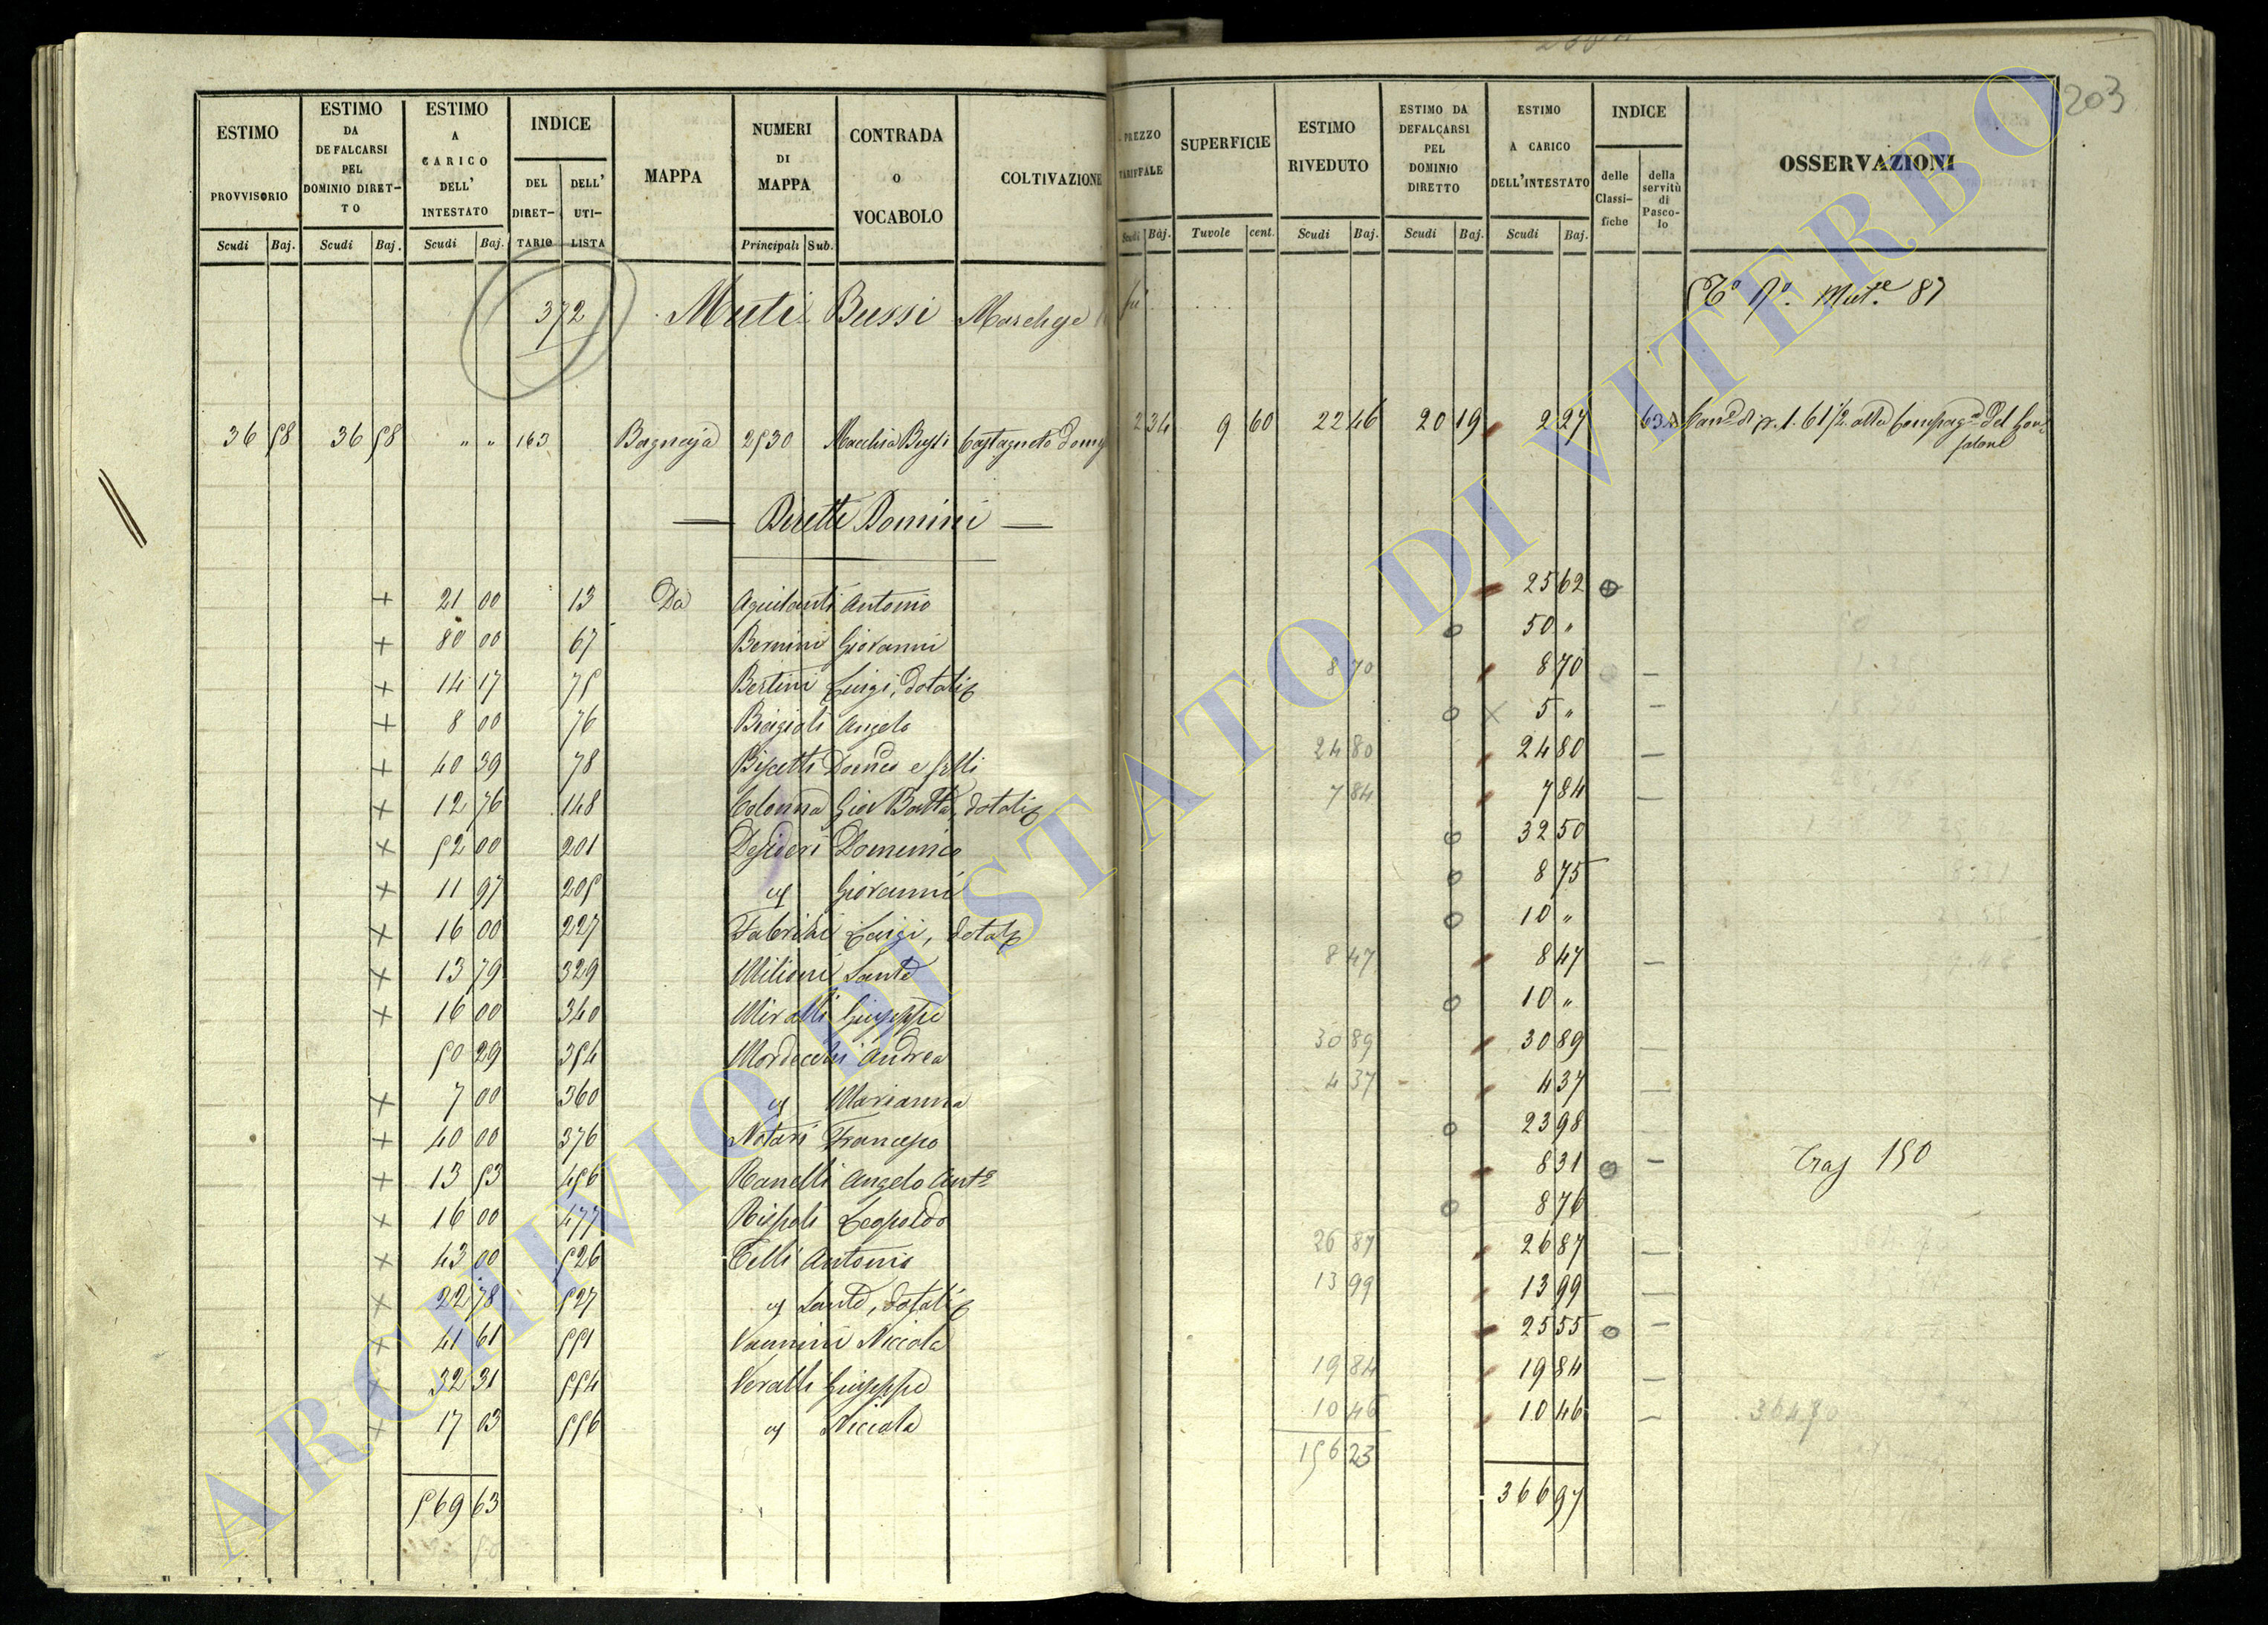 203
ESTIMO PROVVISORIO
ESTIMO DA DEFALCARSI PEL DOMINIO DIRETTO
ESTIMO A CARICO DELL' INTESTATO
INDICE
DEL DIRETTARIO
DELL' UTILISTA
MAPPA
NUMERI DI MAPPA
CONTRADA O VOCABOLO
COLTIVAZIONE
Scudi Baj. Scudi Baj. Scudi Baj. Principali Sub.
PREZZO TARIFFALE
SUPERFICIE
ESTIMO RIVEDUTO
ESTIMO DA DEFALCARSI PEL DOMINIO DIRETTO
ESTIMO A CARICO DELL'INTESTATO
INDICE
delle Classifiche
della servitù di Pascolo
OSSERVAZIONI
Scudi Baj. Tavole cent. Scudi Baj. Scudi Baj. Scudi Baj.
372 Muti Bussi Marchese
87
36 58 36 58 " " 163 Bagnaja 2530 Macchia Bussi Castagneto
2 34 9 60 22 46 20 19 2 27 634
— Diretti Domini —
+ 21 00 13 Da Aquilanti Antonio 25 62
+ 80 00 67 Bernini Giovanni 50 "
+ 14 17 75 Bertini Luigi, 8 70 8 70
+ 8 00 76 Biagioli Angelo 5 "
+ 40 39 78 24 80 24 80
+ 12 76 148 Colonna Gio Batta, 7 84 7 84
+ 52 00 201 Desideri Domenico 32 50
+ 11 97 205 Giovanni 8 75
+ 16 00 227 Luigi, 10 "
+ 13 79 329 Milioni Sante 8 47 8 47
+ 16 00 340 Miralli Giuseppe 10 "
50 29 354 Mordecchi Andrea 30 89 30 89
+ 7 00 360 Marianna 4 37 4 37
+ 40 00 376 Notari Francesco 23 98
+ 13 53 456 Ranelli Angelo Ant.o 8 31 150
+ 16 00 477 Rispoli Leopoldo 8 76
+ 43 00 526 Telli Antonio 26 87 26 87
+ 22 78 527 Sante, 13 99 13 99
+ 41 61 551 Vannini Niccola 25 55
+ 32 31 554 Veralli Giuseppe 19 84 19 84
+ 17 03 556 Niccola 10 46 10 46
156 23
569 63 366 97
ARCHIVIO DI STATO DI VITERBO